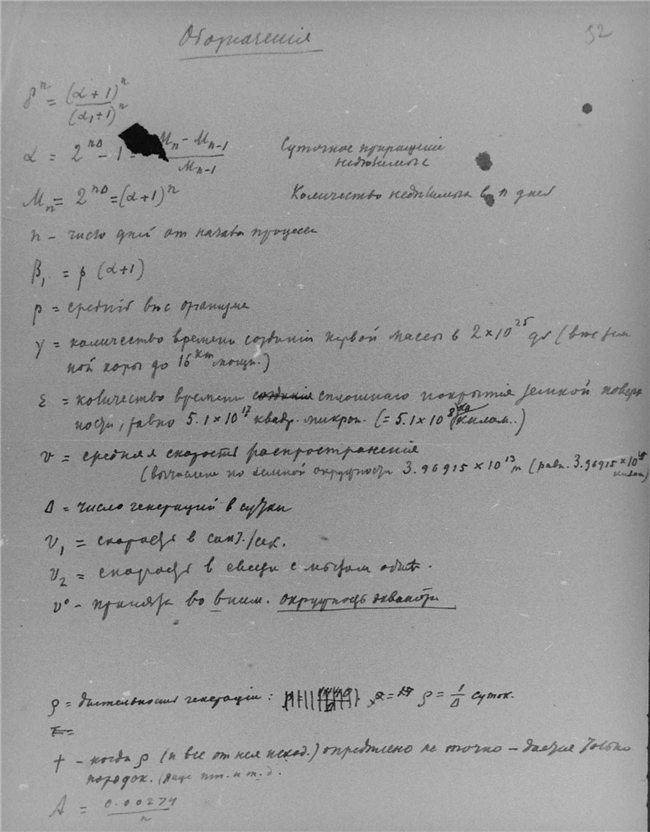 Обозначенія
52
γⁿ = (α+1)ⁿ / (α₁+1)ⁿ
α = 2^{nΔ} - 1 = Mₙ - Mₙ₋₁ / Mₙ₋₁ Суточное приращеніе
недѣлимыхъ
Mₙ = 2^{nΔ} = (α+1)ⁿ Количество недѣлимыхъ въ n дней
n - число дней от начала процесса
β₁ = p (α+1)
p = средній вѣс организма
γ = количество времени созданія первой массы в 2×10²⁵ gr (вѣс зем
ной коры до 16 km мощн.)
ε = количество времени сплошнаго покрытія земной поверх
ности, равно 5.1×10¹⁷ квадр. микрон. (= 5.1×10⁸ килом.)
v = средняя скорость распространенія
(вычислена по земной окружности 3.96915×10¹³ (равн. 3.96915×10
Δ = число генерацій в сутки
v₁ = скорость в сант./сек.
v₂ = скорость в с
v° - приняв во вним. окружность экватора
ρ = длительность генераціи: ρ = 1/Δ суток.
† - когда ρ (и все от нея исход.) опредѣлено не точно - дается только
порядок.
A = 0.00274 / n